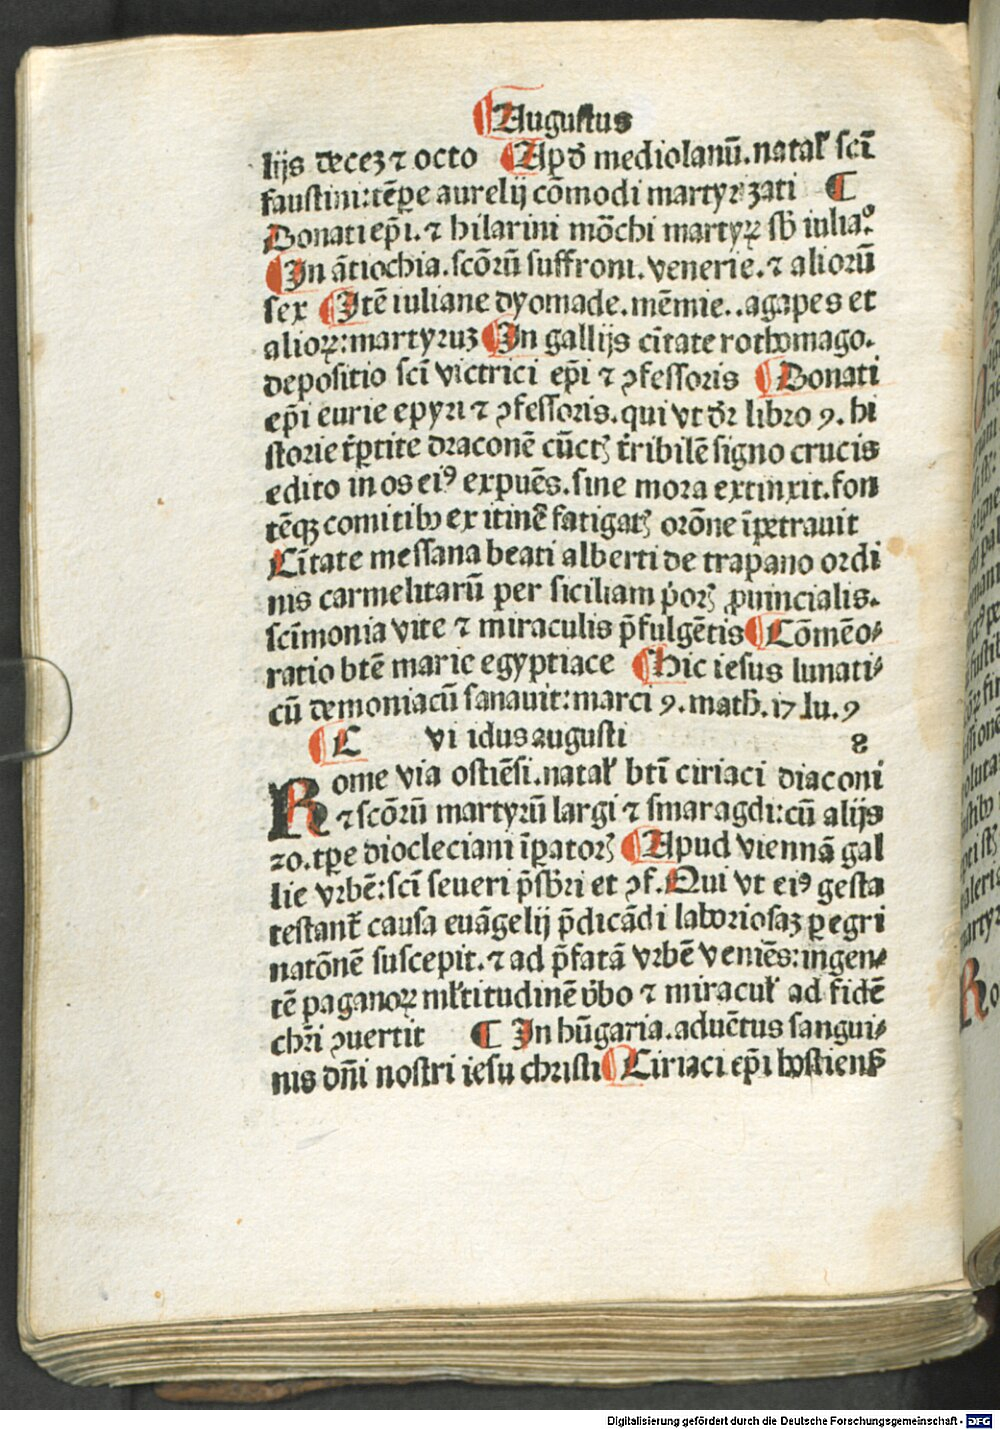 ¶Augustus
lijs decez ⁊ octo ¶Apd̄ mediolanū. natal̕ scī
faustini: tēꝑe aurelij cōmodi martyrizati ¶
Donati ep̄i. ⁊ hilarini mōchi martyꝝ sb̄ iulia°.
¶In ātiochia. scōrū suffroni. venerie. ⁊ aliorū
sex ¶Itē iuliane dyomade. mēmie.. agapes et
alioꝝ: martyruz ¶In gallijs cītate rothomago.
depositio scī victrici ep̄i ⁊ ꝯfessoris ¶Donati
ep̄i eurie epyri ⁊ ꝯfessoris. qui vt dr̄ libro 9. hi
storie t̄ꝑtite draconē cūctꝭ t̄ribilē signo crucis
edito in os eiꝰ expuēs. sine mora extinxit. fon
tēqꝫ comitibꝰ ex itinēr fatigatꝭ orōne īpetrauit
Cītate messana beati alberti de trapano ordi
nis carmelitarū per siciliam p̓orꝭ ꝓuincialis.
scīmonia vite ⁊ miraculis p̄fulgētis ¶Cōmēo⸗
ratio btē marie egyptiace ¶Hic iesus lunati⸗
cū demoniacū sanauit: marci 9. math̄. 17 lu. 9
¶C vi idus augusti 8
Rome via ostiēsi. natal̕ btī ciriaci diaconi
⁊ scōrū martyrū largi ⁊ smaragdi: cū alijs
20. tꝑe diocleciani īꝑatorꝭ ¶Apud viennā gal
lie vrbē: scī seueri p̄sbr̄i et ꝯf. Qui vt eiꝰ gesta
testant̄ causa euāgelij p̄dicādi laboriosaz ꝑegri
natōnē suscepit. ⁊ ad p̄fatā vrbē veniēs: ingen⸗
tē paganoꝝ ml̕titudinē v̄bo ⁊ miracul̕ ad fidē
chr̄i ꝯuertit ¶ In hūgaria. aduētus sangui⸗
nis dn̄i nostri iesu christi ¶Ciriaci ep̄i hostiens̄
Digitalisierung gefördert durch die Deutsche Forschungsgemeinschaft - DFG